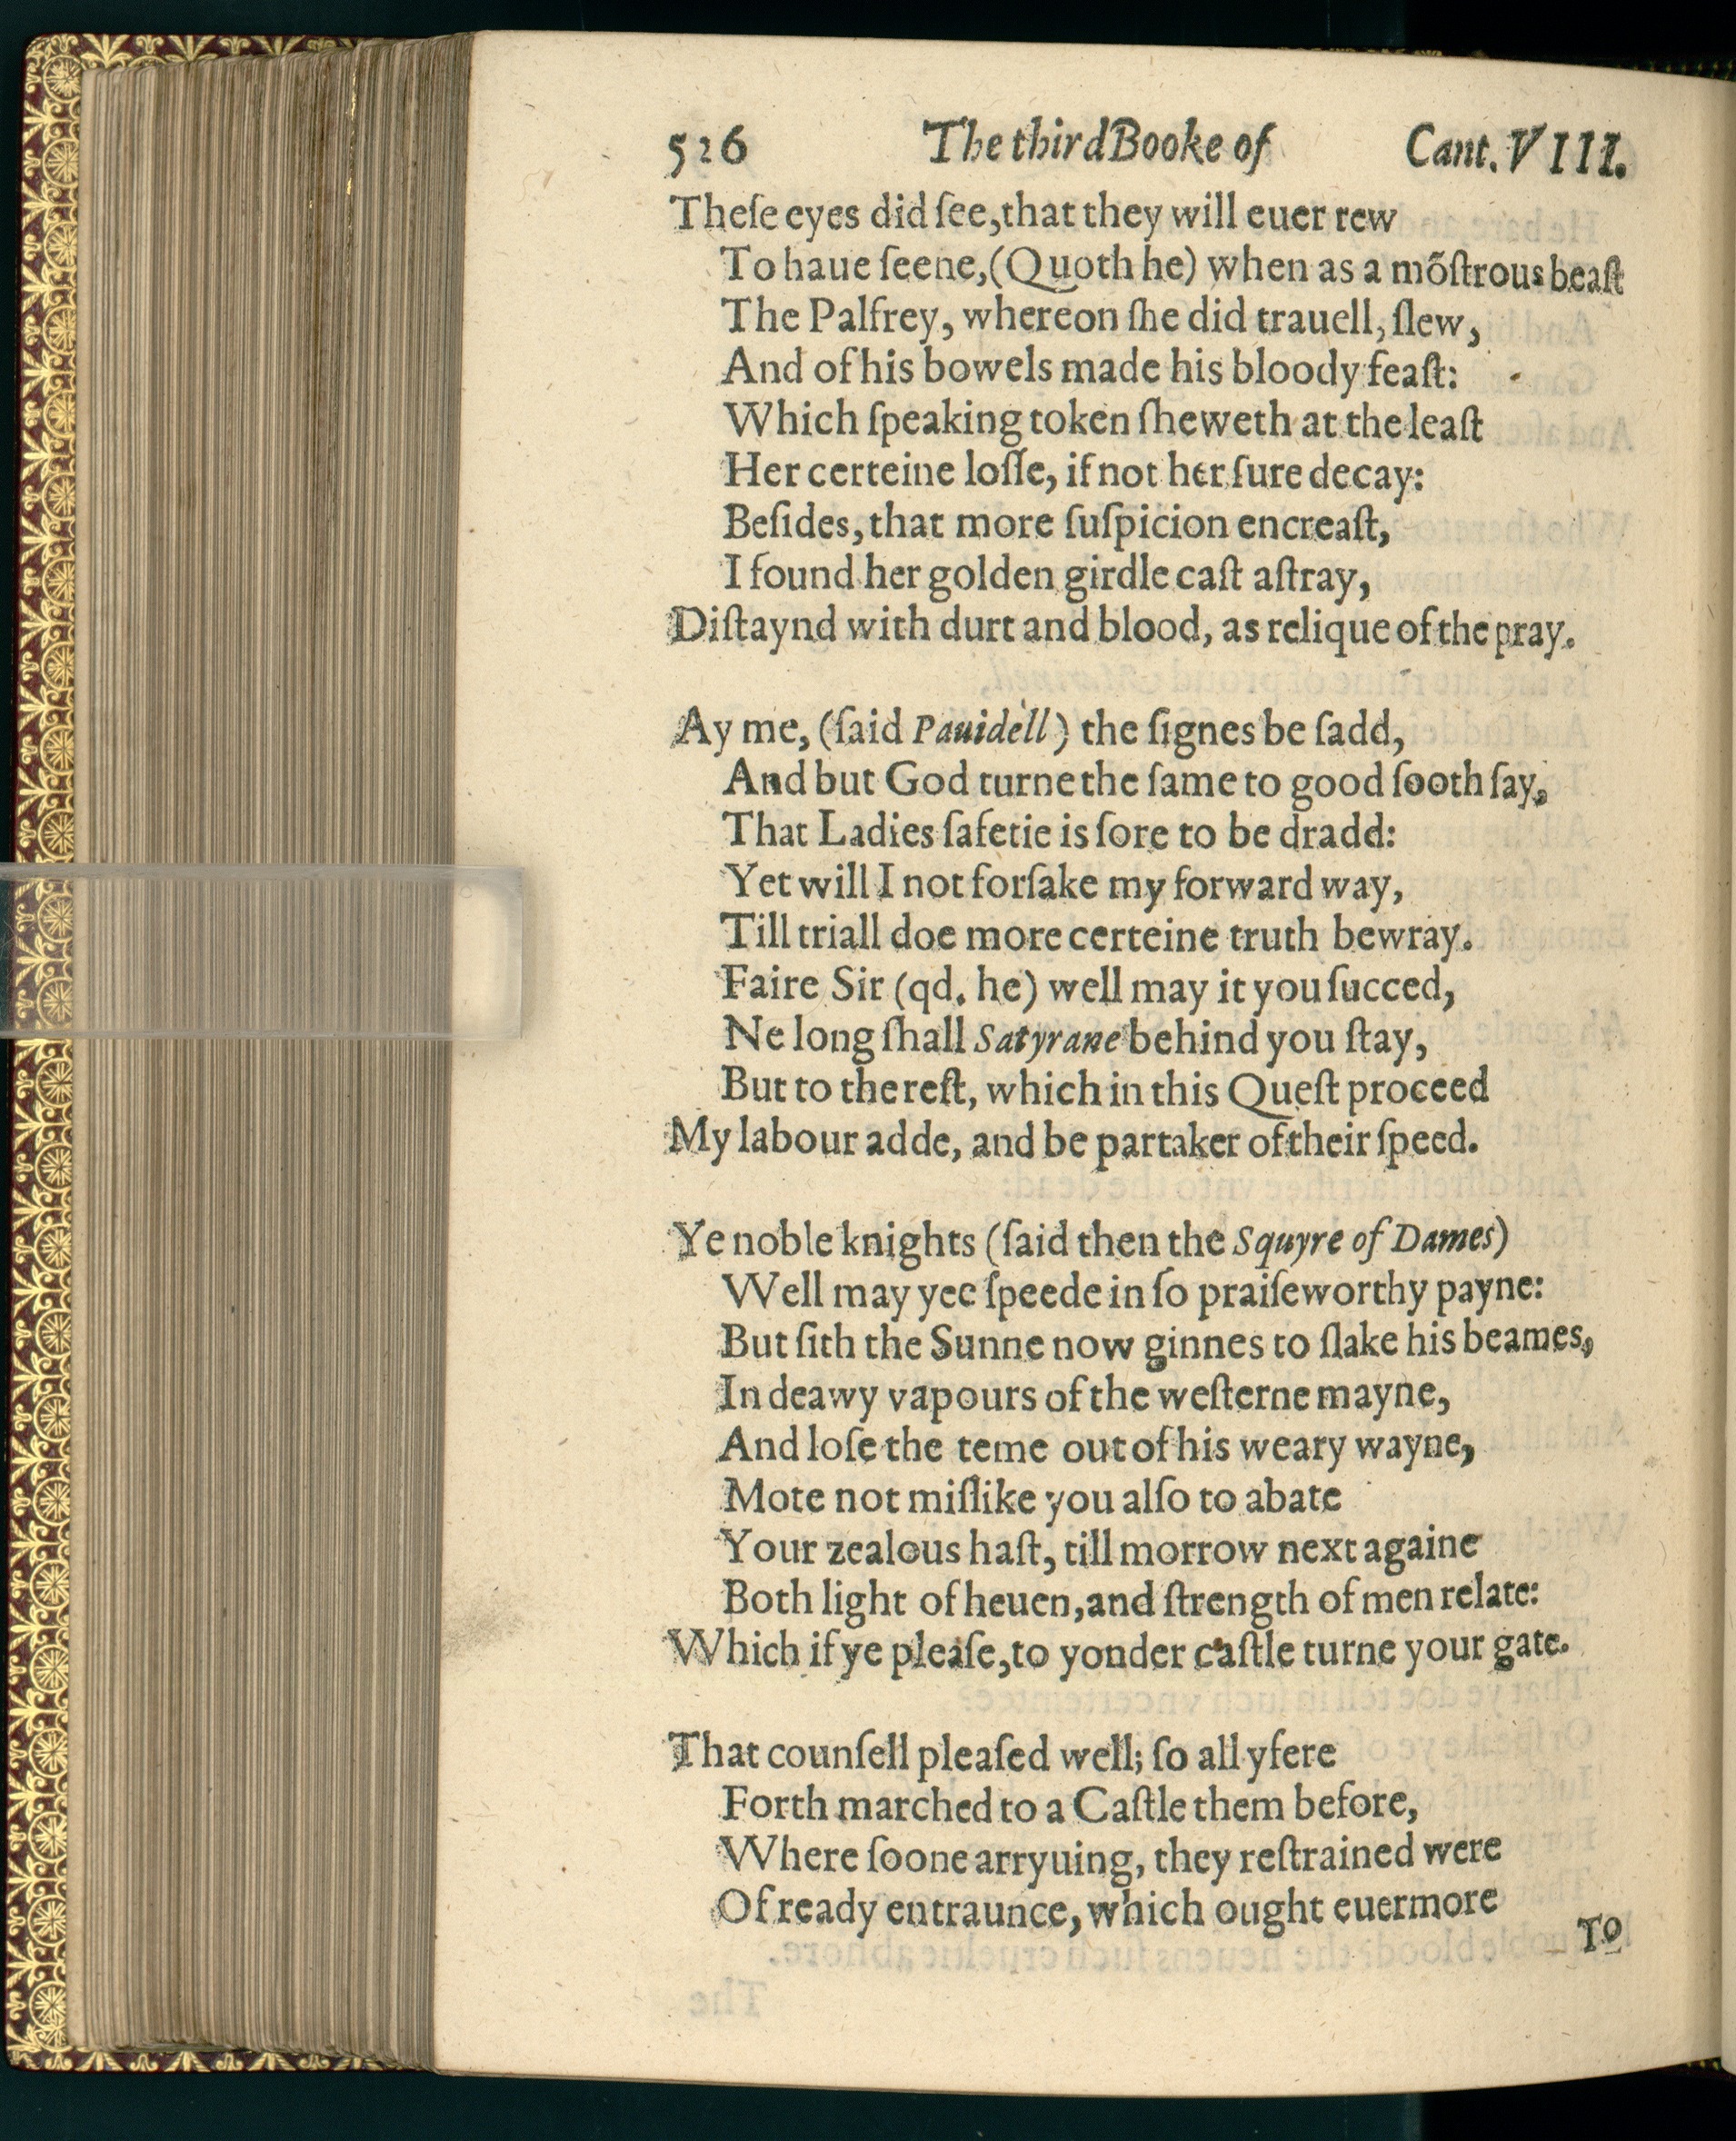 526 The third Booke of Cant. VIII.
Theſe eyes did ſee, that they will euer rew
To haue ſeene, (Quoth he) when as a mõſtrous beaſt
The Palfrey, whereon ſhe did trauell, ſlew,
And of his bowels made his bloody feaſt:
Which ſpeaking token ſheweth at the leaſt
Her certeine loſſe, if not her ſure decay:
Beſides, that more ſuſpicion encreaſt,
I found her golden girdle caſt aſtray,
Diſtaynd with durt and blood, as relique of the pray.
Ay me, (ſaid Pauidèll) the ſignes be ſadd,
And but God turne the ſame to good ſooth ſay,
That Ladies ſafetie is ſore to be dradd:
Yet will I not forſake my forward way,
Till triall doe more certeine truth bewray.
Faire Sir (qd. he) well may it you ſucced,
Ne long ſhall Satyrane behind you ſtay,
But to the reſt, which in this Queſt proceed
My labour adde, and be partaker of their ſpeed.
Ye noble knights (ſaid then the Squyre of Dames)
Well may yee ſpeede in ſo praiſeworthy payne:
But ſith the Sunne now ginnes to ſlake his beames,
In deawy vapours of the weſterne mayne,
And loſe the teme out of his weary wayne,
Mote not miſlike you alſo to abate
Your zealous haſt, till morrow next againe
Both light of heuen, and ſtrength of men relate:
Which if ye pleaſe, to yonder caſtle turne your gate.
That counſell pleaſed well; ſo all yfere
Forth marched to a Caſtle them before,
Where ſoone arryuing, they reſtrained were
Of ready entraunce, which ought euermore
To